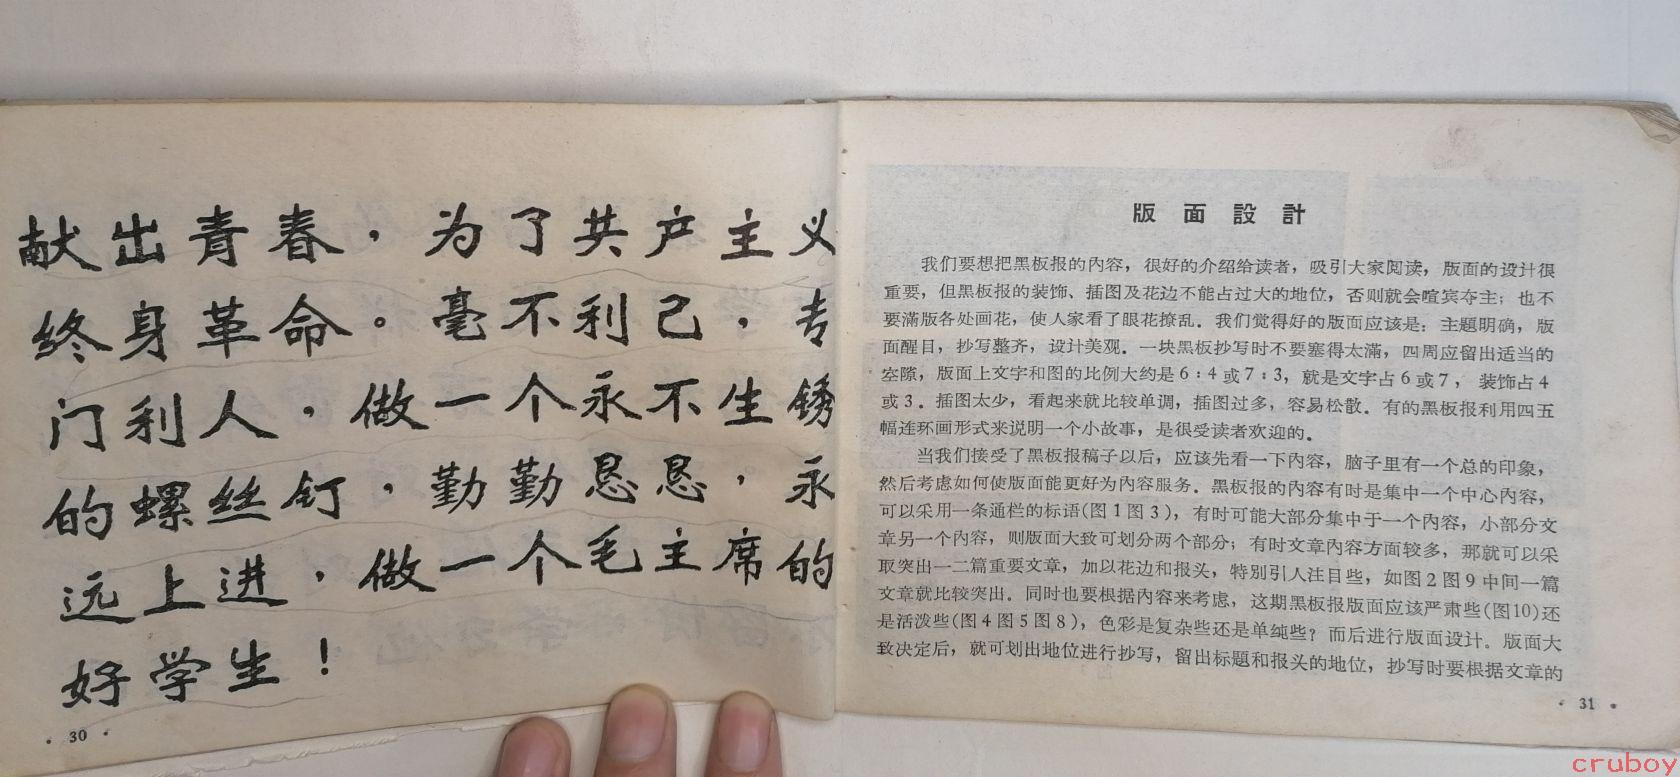 献出青春，为了共产主义
终身革命。毫不利己，专
门利人，做一个永不生锈
的螺丝钉，勤勤恳恳，永
远上进，做一个毛主席的
好学生！
· 30 ·
版面設計
我们要想把黑板报的內容，很好的介绍给读者，吸引大家阅读，版面的设计很
重要，但黑板报的装饰、插图及花边不能占过大的地位，否则就会喧宾夺主；也不
要滿版各处画花，使人家看了眼花撩乱．我们觉得好的版面应该是：主題明确，版
面醒目，抄写整齐，设计美观．一块黑板抄写时不要塞得太滿，四周应留出适当的
空隙，版面上文字和图的比例大约是6：4或7：3，就是文字占6或7，装饰占4
或3．插图太少，看起来就比较单调，插图过多，容易松散．有的黑板报利用四五
幅连环画形式来说明一个小故事，是很受读者欢迎的。
当我们接受了黑板报稿子以后，应该先看一下內容，脑子里有一个总的印象，
然后考虑如何使版面能更好为內容服务．黑板报的內容有时是集中一个中心內容，
可以采用一条通栏的标语(图1图3)，有时可能大部分集中于一个內容，小部分文
章另一个內容，则版面大致可划分两个部分；有时文章內容方面较多，那就可以采
取突出一二篇重要文章，加以花边和报头，特别引人注目些，如图2图9中间一篇
文章就比较突出．同时也要根据內容来考虑，这期黑板报版面应该严肃些(图10)还
是活泼些(图4图5图8)，色彩是复杂些还是单纯些？而后进行版面设计。版面大
致决定后，就可划出地位进行抄写，留出标题和报头的地位，抄写时要根据文章的
· 31 ·
cruboy